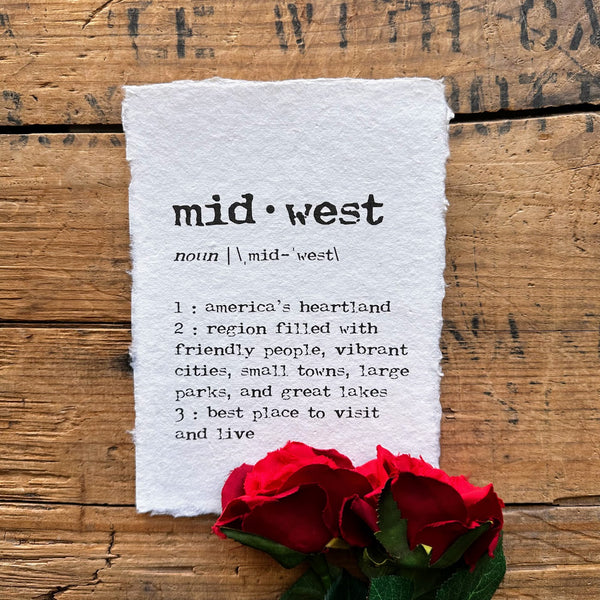 mid•west
noun | \ˌmid-ˈwest\
1 : america's heartland
2 : region filled with
friendly people, vibrant
cities, small towns, large
parks, and great lakes
3 : best place to visit
and live